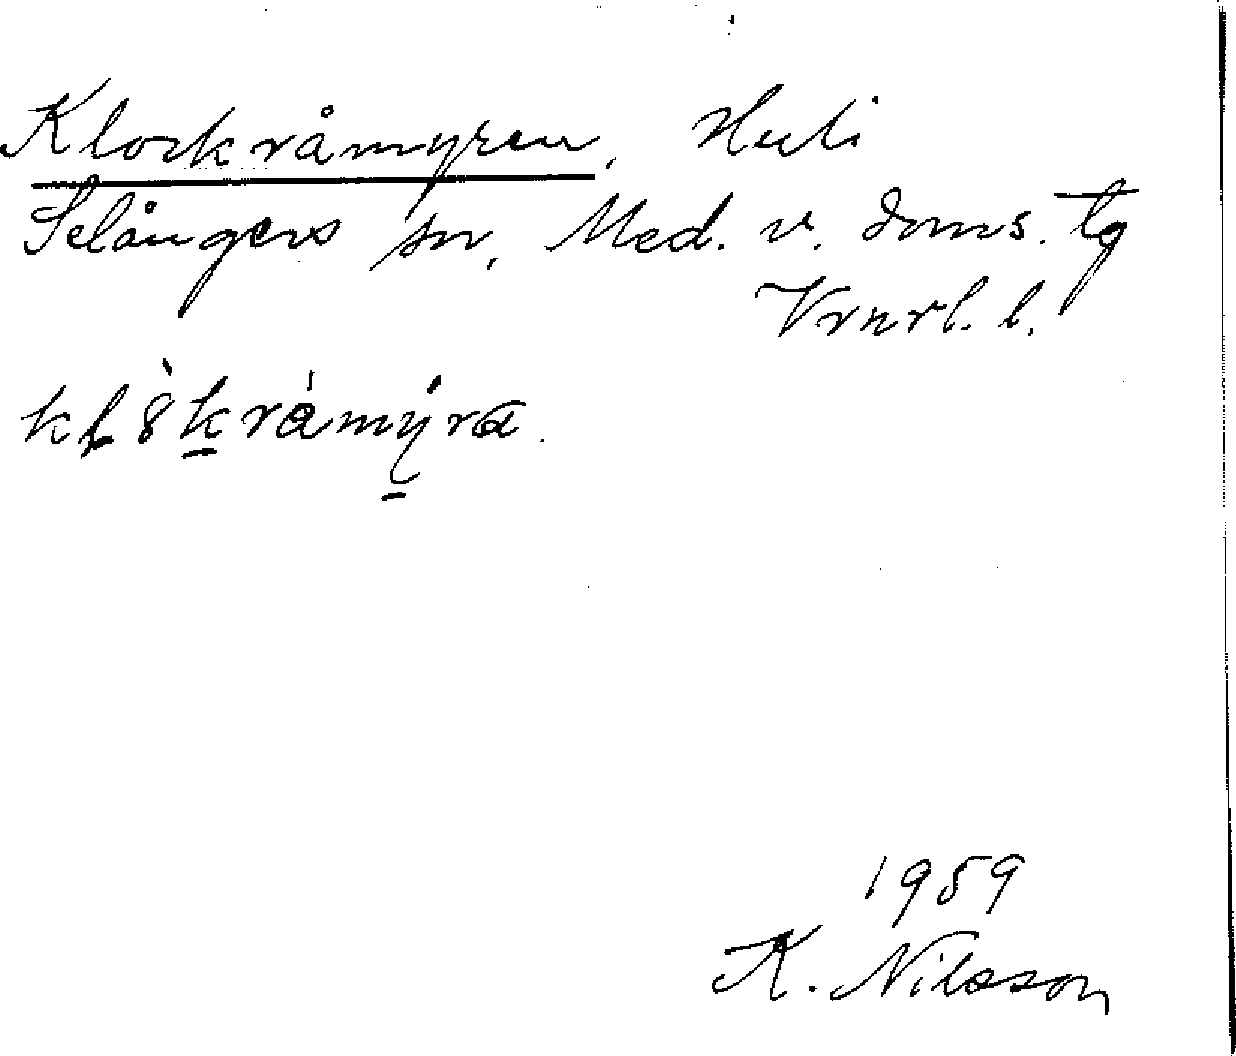 Klockråmyren, Huli
Selångers sn, Med. v. doms. tg
Vrnrl. l.
kl8̀kråmýra.
1959
K. Nilsson